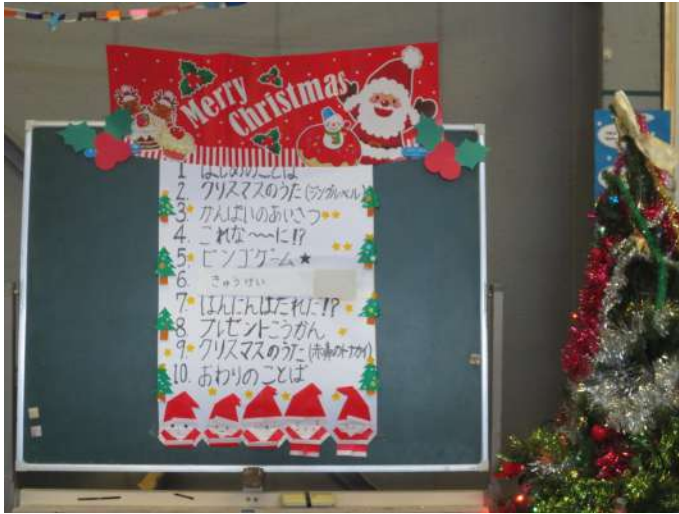 Merry
Christmas
1. はじめのことば
2. クリスマスのうた(ジングルベル)
3. かんぱいのあいさつ
4. これな～～に!?
5. ビンゴゲーム★
6. きゅうけい
7. はんにんはだれだ!?
8. プレゼントこうかん
9. クリスマスのうた(赤鼻のトナカイ)
10. おわりのことば